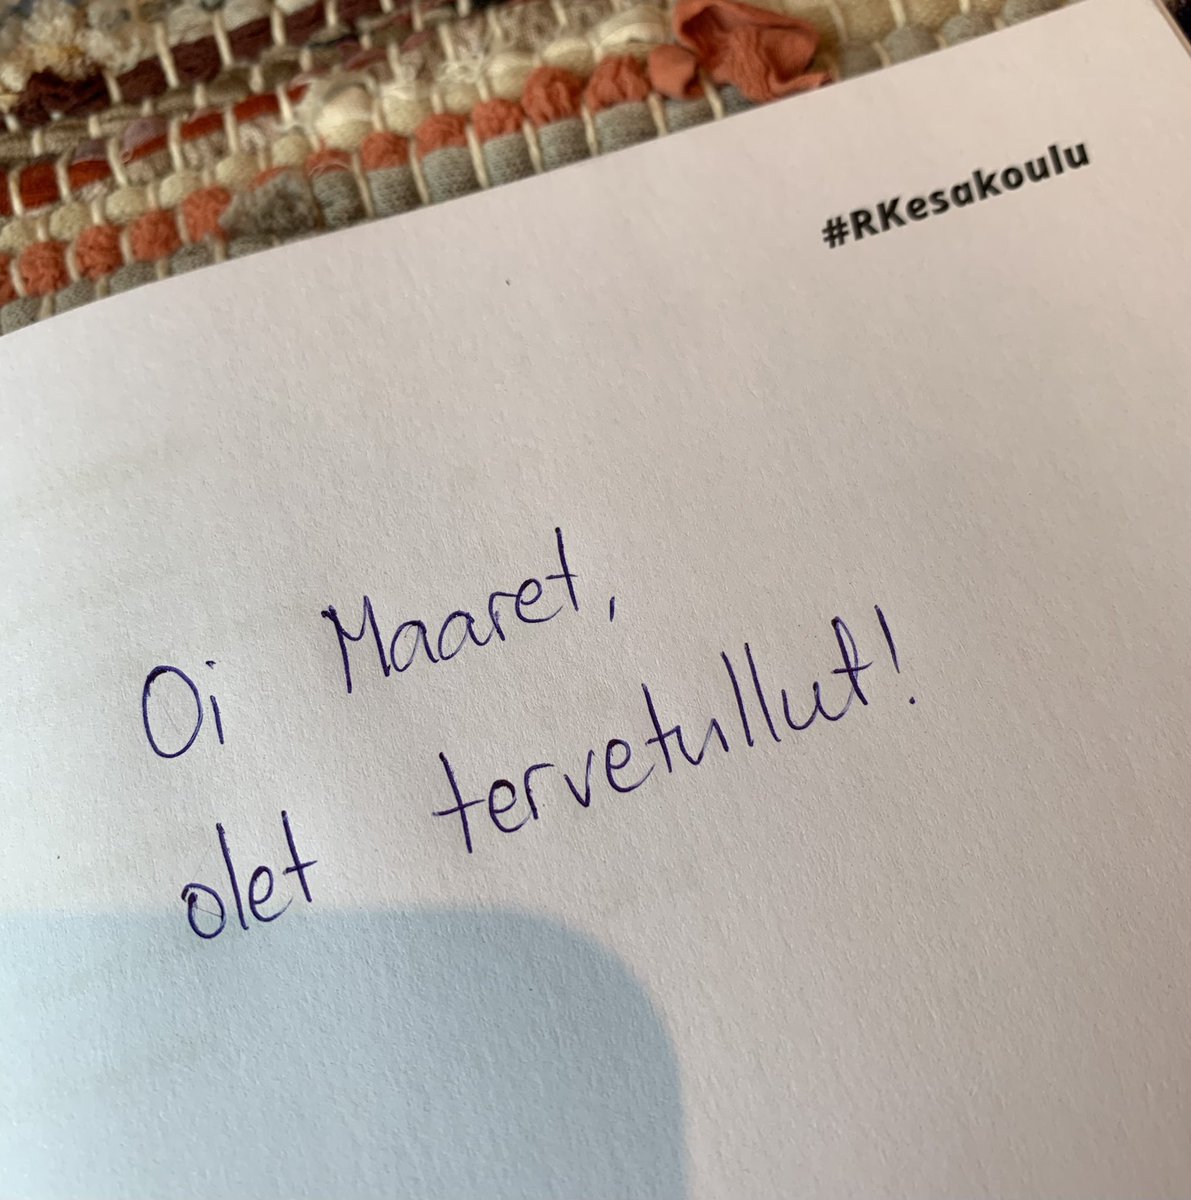 #RKesakoulu
Oi Maaret,
olet tervetullut!